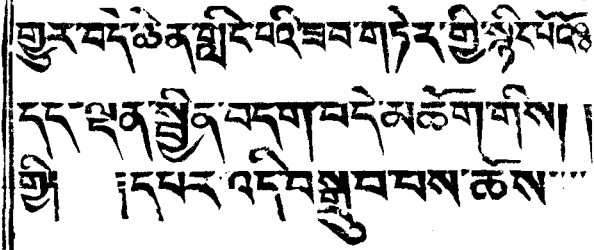 གྱུར་བདེ་ཆེན་གླིང་པའི་ཟབ་གཏེར་གྱི་སྙིང་པོའོ༔
དད་ལྡན་སྦྱིན་བདག་བདེ་མཆོག་གིས། །
གྱི༔ ༔དཔར་འདི་བསྒྲུབ་པས་ཆོས་